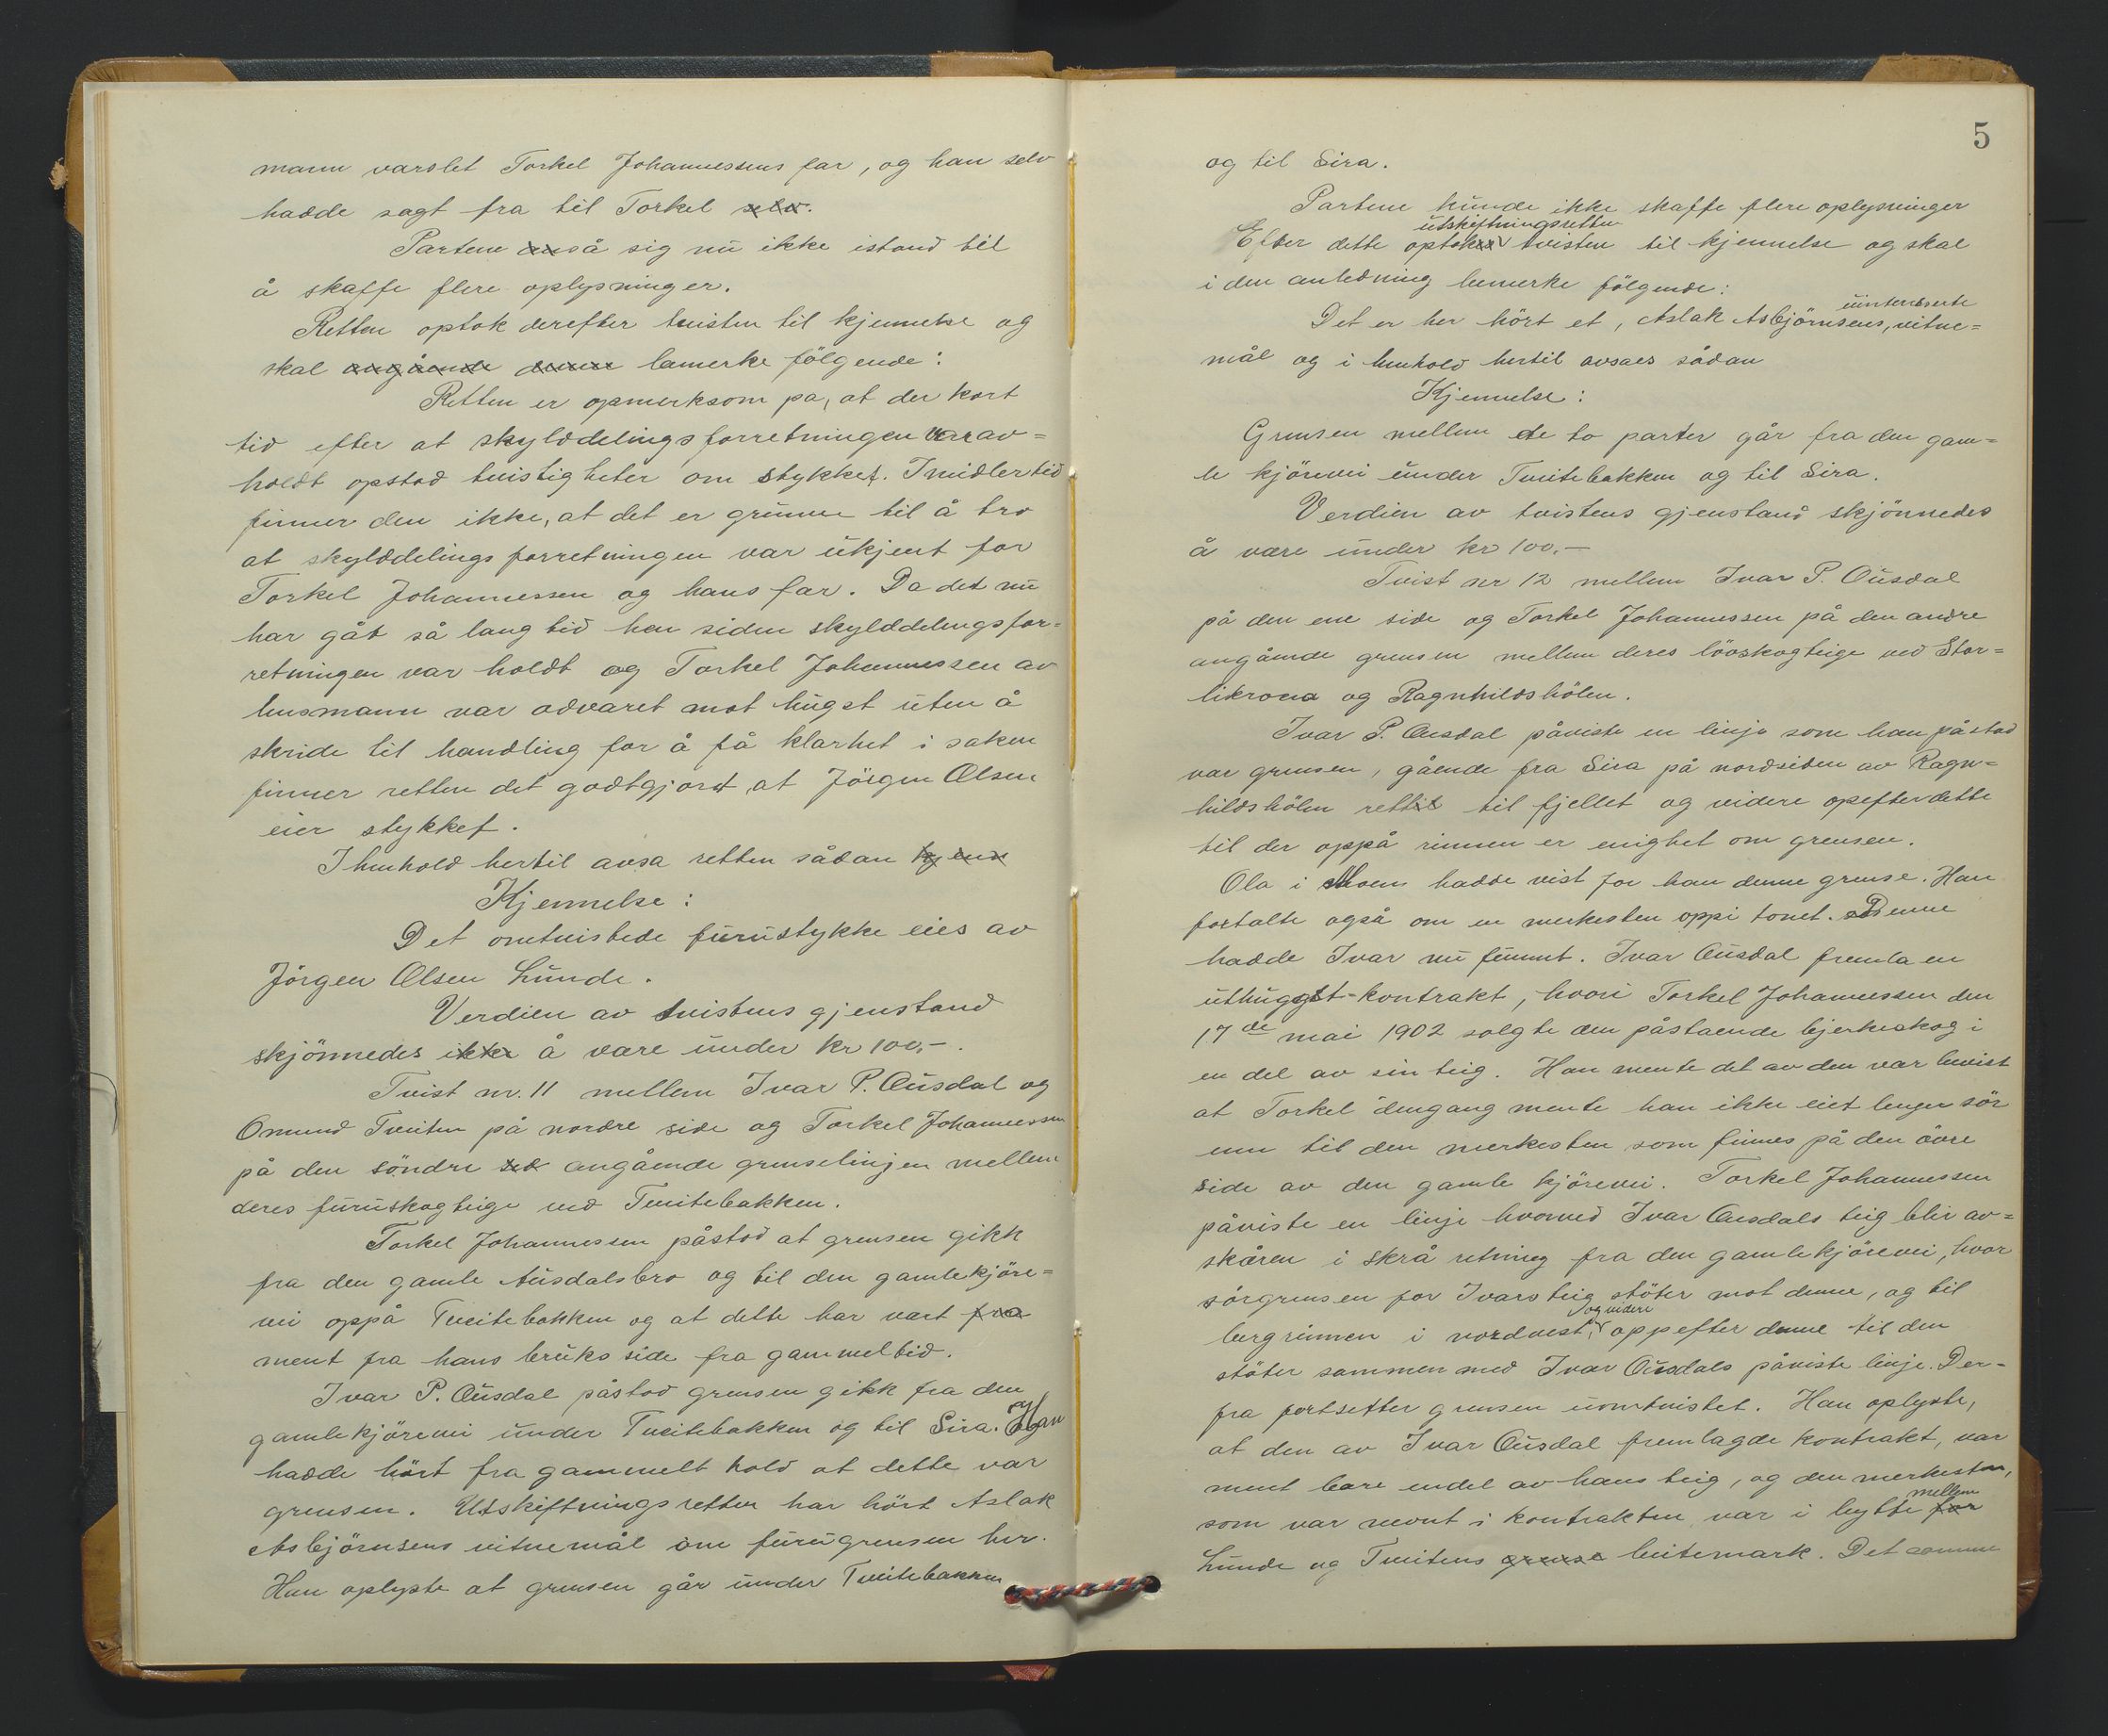 mann varslet Torkel Johannessens far, og han selv
hadde sagt fra til Torkel selv.
Partene anså sig nu ikke istand til
å skaffe flere oplysninger.
Retten optok derefter tvisten til kjennelse og
skal angående denne bemerke følgende:
Retten er opmerksom på, at der kort
tid efter at skylddelingsforretningen var av=
holdt opstod tvistigheter om stykket. Imidlertid
finner den ikke, at det er grunn til å tro
at skylddelingsforretningen var ukjent for
Torkel Johannessen og hans far. Da det nu
har gåt så lang tid hen siden skylddelingsfor=
retningen var holdt og Torkel Johannessen av
husmann var advaret mot hugst uten å
skride til handling for å få klarhet i saken
finner retten det godtgjort, at Jörgen Olsen
eier stykket.
I henhold hertil avsa retten sådan kjenn
Kjennelse:
Det omtvistede furustykke eies av
Jörgen Olsen Lunde.
Verdien av tvistens gjenstand
skjönnedes ikke å være under kr 100,-.
Tvist nr. 11 mellem Ivar P. Ousdal og
Omund Tveiten på nordre side og Torkel Johannessen
på den söndre sid angående grenselinjen mellem
deres furuskogteige ved Tveitebakken.
Torkel Johannessen påstod at grensen gikk
fra den gamle Ausdalsbro og til den gamle kjöre=
vei oppå Tveitebakken og at dette har vært fra
ment fra hans bruks side fra gammel tid.
Ivar P. Ousdal påstod grensen gikk fra den
gamle kjörevei under Tveitebakken og til Sira. Han
hadde hört fra gammelt hold at dette var
grensen. Utskiftningsretten har hört Aslak
Asbjörnsens vitnemål om furugrensen her.
Han oplyste at grensen går under Tveitebakken
5
og til Sira.
Partene kunde ikke skaffe flere oplysninger
utskiftningsretten
Efter dette optok tvisten til kjennelse og skal
i den anledning bemerke fölgende:
uinteresserte
Det er her hört et, Aslak Asbjörnsens, vitne=
mål og i henhold hertil avsaes sådan
Kjennelse:
Grensen mellem de to parter går fra den gam=
le kjörevei under Tveitebakken og til Sira.
Verdien av tvistens gjenstand skjönnedes
å være under kr 100,-
Tvist nr 12 mellem Ivar P. Ousdal
på den ene side og Torkel Johannessen på den andre
angående grensen mellem deres lövskogteige ved Stor=
likroea og Ragnhildshölen.
Ivar P. Ousdal påviste en linje som han påstod
var grensen, gående fra Sira på nordsiden av Ragn=
hildshölen rett til fjellet og videre opefter dette
til der oppå rinnen er enighet om grensen.
Ola i hadde vist for han denne grense. Han
fortalte også om en merkesten oppi tonet. Denne
hadde Ivar nu funnet. Ivar Ousdal fremla en
uthuggst-kontrakt, hvori Torkel Johannessen den
17de mai 1902 solgte den påstående bjerkeskog i
en del av sin teig. Han mente det av den var bevist
at Torkel dengang mente han ikke eiet lenger sör
enn til den merkesten som finnes på den övre
side av den gamle kjörevei. Torkel Johannessen
påviste en linje hvorved Ivar Ousdals teig blir av=
skåren i skrå retning fra den gamle kjörevei, hvor
sörgrensen for Ivars teig stöter mot denne, og til
og videre
bergrinnen i nordvest, oppefter denne til den
stöter sammen med Ivar Ousdals påviste linje. Der=
fra fortsetter grensen uomtvistet. Han oplyste,
at den av Ivar Ousdal fremlagde kontrakt, var
ment bare endel av hans teig, og den merkesten,
mellem
som var nevnt i kontrakten var i bytte for
Lunde og Tveitens grense beitemark. Det samme